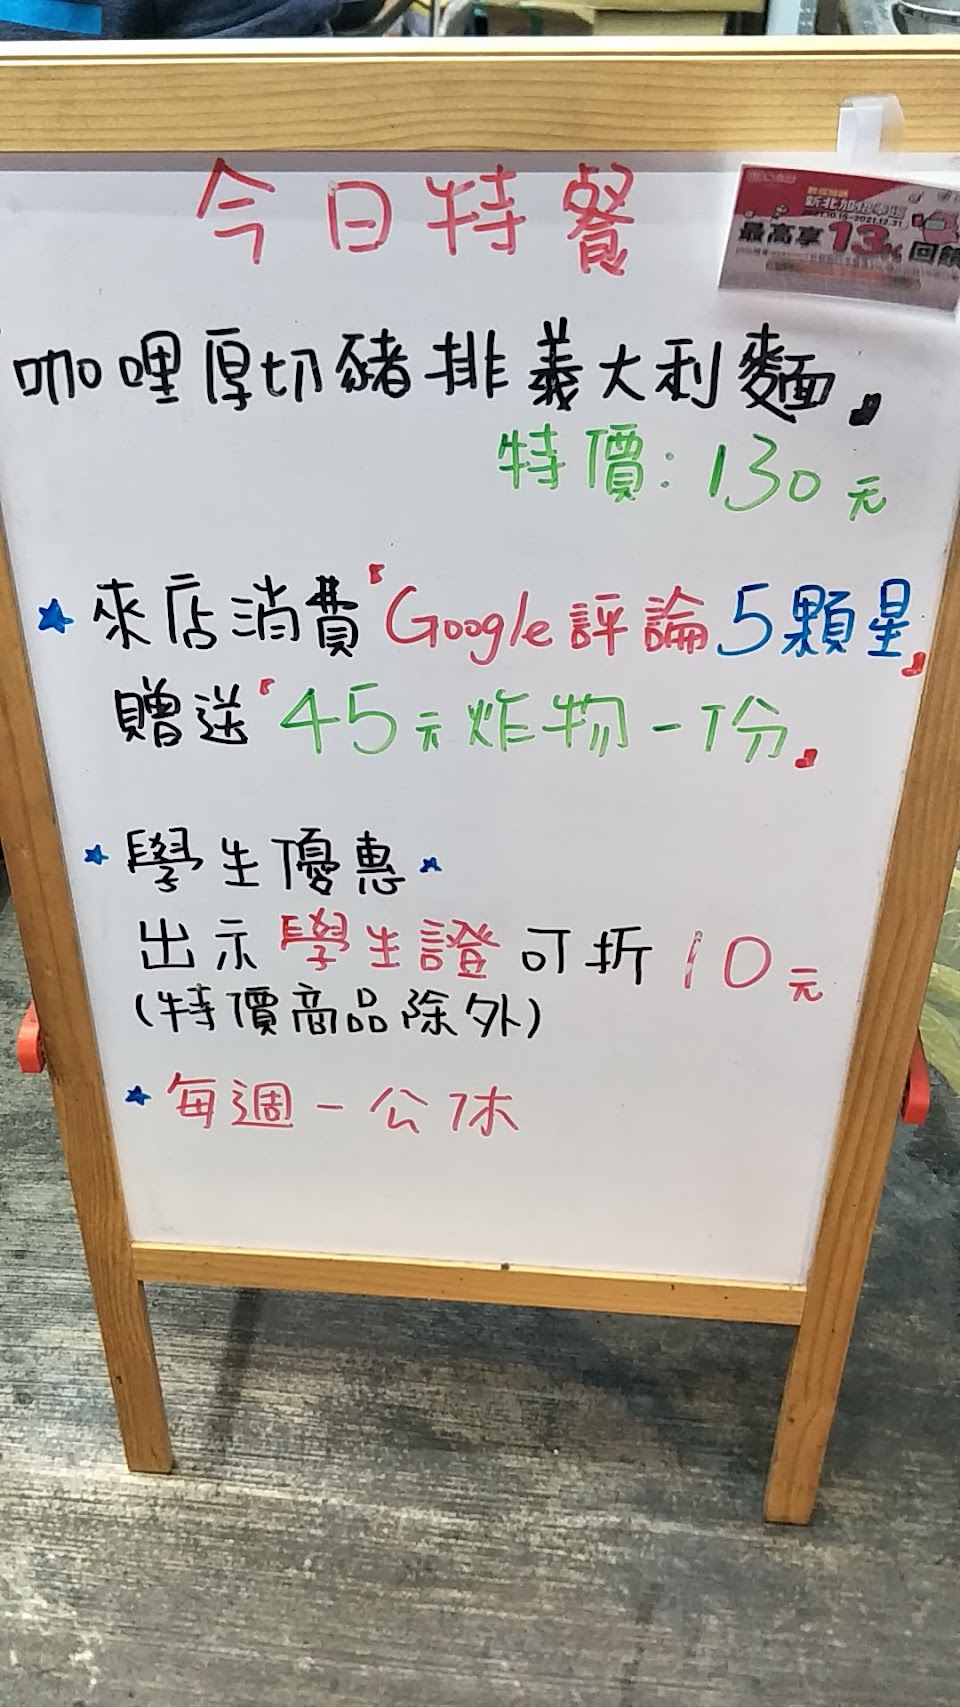 今日特餐
新北加倍幸福
最高享13%回饋
咖哩厚切豬排義大利麵』
特價：130元
★來店消費『Google評論5顆星』
贈送『45元炸物一份』
★學生優惠★
出示學生證可折10元
(特價商品除外)
★每週一公休